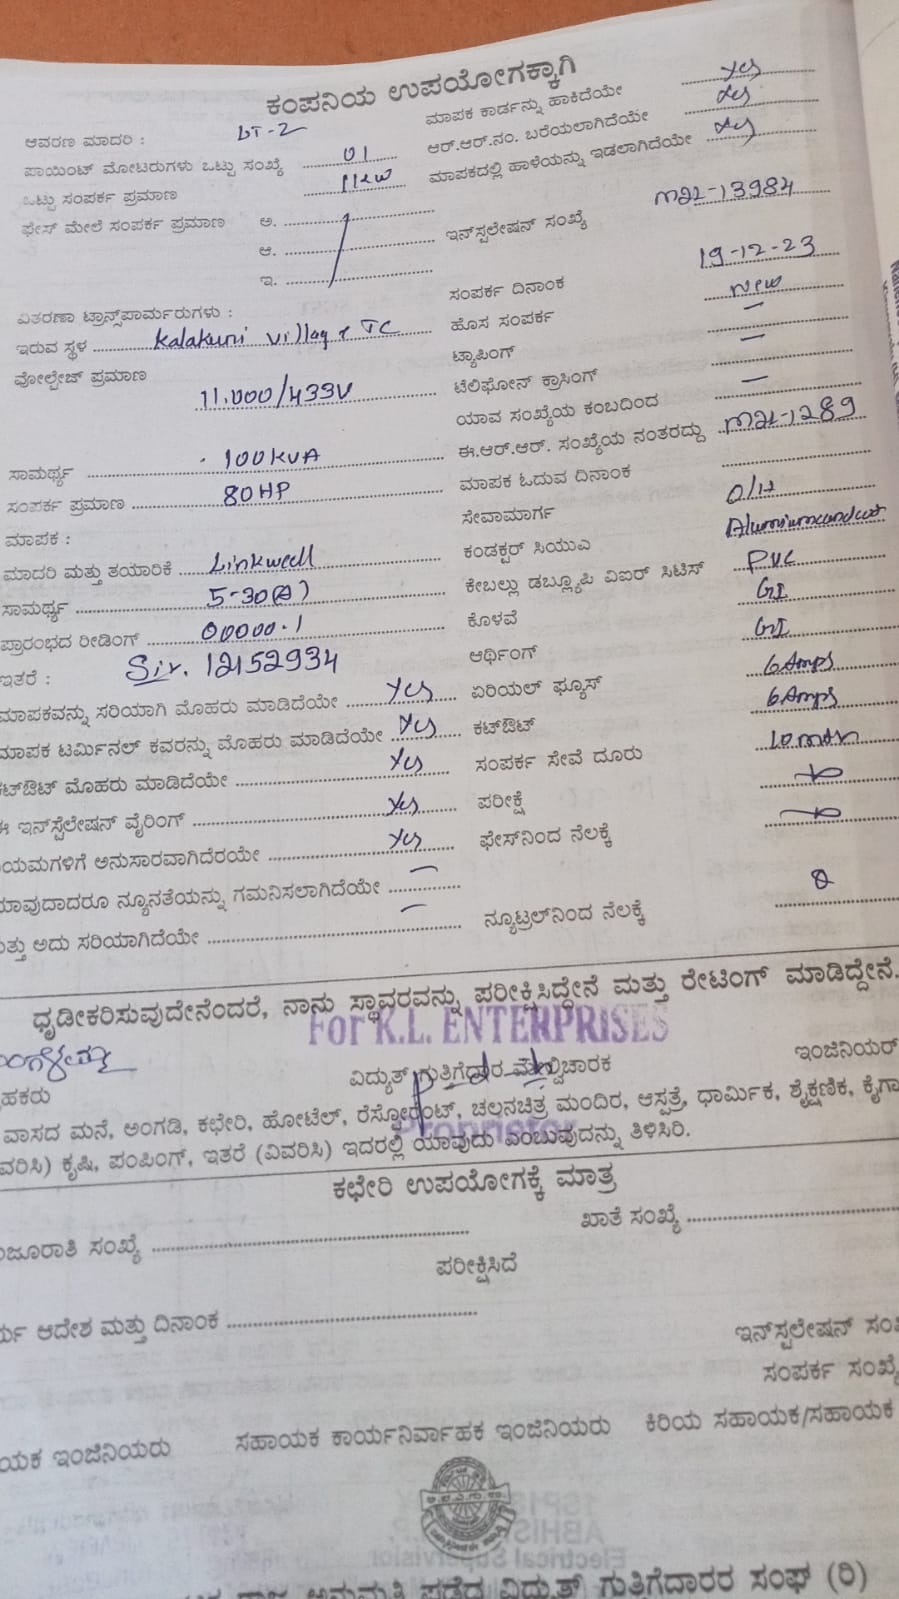 ಕಂಪನಿಯ ಉಪಯೋಗಕ್ಕಾಗಿ
ಆವರಣ ಮಾದರಿ : LT-2
ಪಾಯಿಂಟ್ ಮೋಟರುಗಳು ಒಟ್ಟು ಸಂಖ್ಯೆ 01
ಒಟ್ಟು ಸಂಪರ್ಕ ಪ್ರಮಾಣ 1kw
ಫೇಸ್ ಮೇಲೆ ಸಂಪರ್ಕ ಪ್ರಮಾಣ ಅ.
ಆ.
ಇ.
ವಿತರಣಾ ಟ್ರಾನ್ಸ್‌ಪಾರ್ಮರುಗಳು :
ಇರುವ ಸ್ಥಳ Kalakuni village TC
ವೋಲ್ಟೇಜ್ ಪ್ರಮಾಣ
11,000/433V
ಸಾಮರ್ಥ್ಯ 100KVA
ಸಂಪರ್ಕ ಪ್ರಮಾಣ 80HP
ಮಾಪಕ :
ಮಾದರಿ ಮತ್ತು ತಯಾರಿಕೆ Linkwell
ಸಾಮರ್ಥ್ಯ 5-30(A)
ಪ್ರಾರಂಭದ ರೀಡಿಂಗ್ 00000.1
ಇತರೆ : 12152934
ಮಾಪಕವನ್ನು ಸರಿಯಾಗಿ ಮೊಹರು ಮಾಡಿದೆಯೇ Yes
ಮಾಪಕ ಟರ್ಮಿನಲ್ ಕವರನ್ನು ಮೊಹರು ಮಾಡಿದೆಯೇ Yes
ಕಟ್‌ಔಟ್ ಮೊಹರು ಮಾಡಿದೆಯೇ Yes
ಈ ಇನ್‌ಸ್ಟೆಲೇಷನ್ ವೈರಿಂಗ್ Yes
ಯಮಗಳಿಗೆ ಅನುಸಾರವಾಗಿದೆರಯೇ Yes
ಯಾವುದಾದರೂ ನ್ಯೂನತೆಯನ್ನು ಗಮನಿಸಲಾಗಿದೆಯೇ –
ಮತ್ತು ಅದು ಸರಿಯಾಗಿದೆಯೇ –
ಮಾಪಕ ಕಾರ್ಡನ್ನು ಹಾಕಿದೆಯೇ Yes
ಆರ್.ಆರ್.ನಂ. ಬರೆಯಲಾಗಿದೆಯೇ Yes
ಮಾಪಕದಲ್ಲಿ ಹಾಳೆಯನ್ನು ಇಡಲಾಗಿದೆಯೇ Yes
ಇನ್‌ಸ್ಟಲೇಷನ್ ಸಂಖ್ಯೆ M2L-13984
ಸಂಪರ್ಕ ದಿನಾಂಕ 19-12-23
ಹೊಸ ಸಂಪರ್ಕ New
ಟ್ಯಾಪಿಂಗ್ –
ಟೆಲಿಫೋನ್ ಕ್ರಾಸಿಂಗ್ –
ಯಾವ ಸಂಖ್ಯೆಯ ಕಂಬದಿಂದ –
ಈ.ಆರ್.ಆರ್. ಸಂಖ್ಯೆಯ ನಂತರದ್ದು M2L-1289
ಮಾಪಕ ಓದುವ ದಿನಾಂಕ
ಸೇವಾಮಾರ್ಗ O/H
ಕಂಡಕ್ಟರ್ ಸಿಯುಎ
ಕೇಬಲ್ಲು ಡಬ್ಲ್ಯೂಪಿ ವಿಐರ್ ಸಿಟಿಸ್ PVC
ಕೊಳವೆ GI
ಆರ್ಥಿಂಗ್ GI
ಏರಿಯಲ್ ಫ್ಯೂಸ್ 6 Amps
ಕಟ್‌ಔಟ್ 6 Amps
ಸಂಪರ್ಕ ಸೇವೆ ದೂರು
ಪರೀಕ್ಷೆ
ಫೇಸ್‌ನಿಂದ ನೆಲಕ್ಕೆ
ನ್ಯೂಟ್ರಲ್‌ನಿಂದ ನೆಲಕ್ಕೆ
ಧೃಡೀಕರಿಸುವುದೇನೆಂದರೆ, ನಾನು ಸ್ಥಾವರವನ್ನು ಪರೀಕ್ಷಿಸಿದ್ದೇನೆ ಮತ್ತು ರೇಟಿಂಗ್ ಮಾಡಿದ್ದೇನೆ.
For K.L. ENTERPRISES
ಹಕರು ವಿದ್ಯುತ್ ಗುತ್ತಿಗೆದಾರ ಮೇಲ್ವಿಚಾರಕ ಇಂಜಿನಿಯರ್
Proprietor
ವಾಸದ ಮನೆ, ಅಂಗಡಿ, ಕಛೇರಿ, ಹೋಟೆಲ್, ರೆಸ್ಟೋರೆಂಟ್, ಚಲನಚಿತ್ರ ಮಂದಿರ, ಆಸ್ಪತ್ರೆ, ಧಾರ್ಮಿಕ, ಶೈಕ್ಷಣಿಕ, ಕೈಗಾ
ವರಿಸಿ) ಕೃಷಿ, ಪಂಪಿಂಗ್, ಇತರೆ (ವಿವರಿಸಿ) ಇದರಲ್ಲಿ ಯಾವುದು ಎಂಬುವುದನ್ನು ತಿಳಿಸಿರಿ.
ಕಛೇರಿ ಉಪಯೋಗಕ್ಕೆ ಮಾತ್ರ
ಜೂರಾತಿ ಸಂಖ್ಯೆ ಖಾತೆ ಸಂಖ್ಯೆ
ಪರೀಕ್ಷಿಸಿದೆ
ರ್ಯ ಆದೇಶ ಮತ್ತು ದಿನಾಂಕ
ಇನ್‌ಸ್ಟಲೇಷನ್ ಸಂ
ಸಂಪರ್ಕ ಸಂಖ್ಯೆ
ಯಕ ಇಂಜಿನಿಯರು ಸಹಾಯಕ ಕಾರ್ಯನಿರ್ವಾಹಕ ಇಂಜಿನಿಯರು ಕಿರಿಯ ಸಹಾಯಕ/ಸಹಾಯಕ
ರಾಜ್ಯ ಅನುಮತಿ ಪಡೆದ ವಿದ್ಯುತ್ ಗುತ್ತಿಗೆದಾರರ ಸಂಘ (ರಿ)